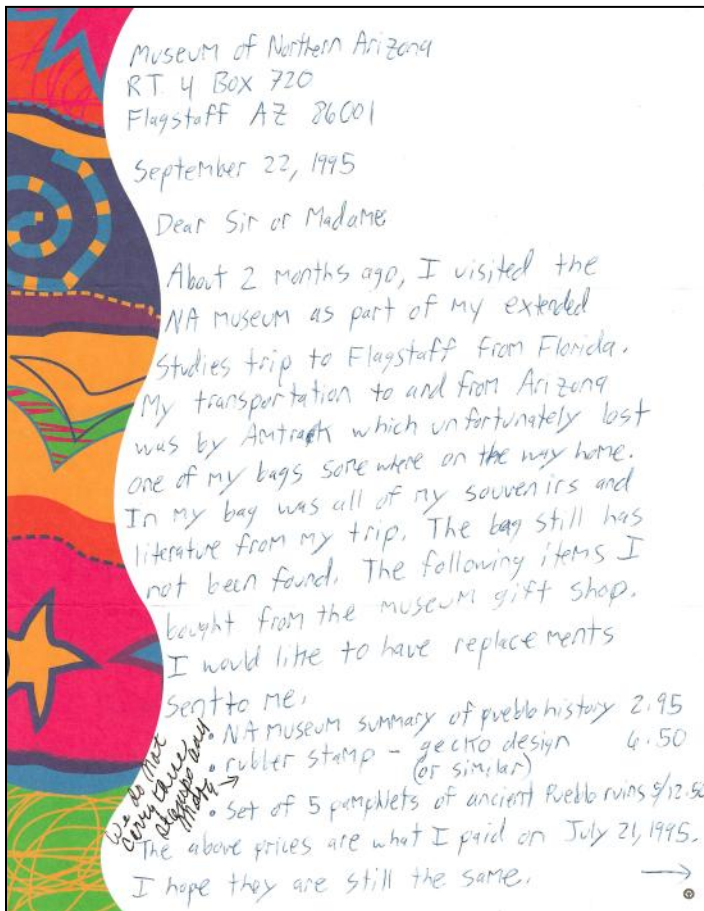 Museum of Northern Arizona
RT 4 Box 720
Flagstaff AZ 86001
September 22, 1995
Dear Sir or Madame
About 2 months ago, I visited the
NA museum as part of my extended
studies trip to Flagstaff from Florida.
My transportation to and from Arizona
was by Amtrack which unfortunately lost
one of my bags somewhere on the way home.
In my bag was all of my souvenirs and
literature from my trip. The bag still has
not been found. The following items I
bought from the museum gift shop.
I would like to have replacements
sent to me.
• NA museum summary of pueblo history 2.95
• rubber stamp – gecko design 6.50
(or similar)
We do not
carry these
stamps any
more →
• set of 5 pamphlets of ancient Pueblo ruins 5/12.50
The above prices are what I paid on July 21, 1995.
I hope they are still the same. →